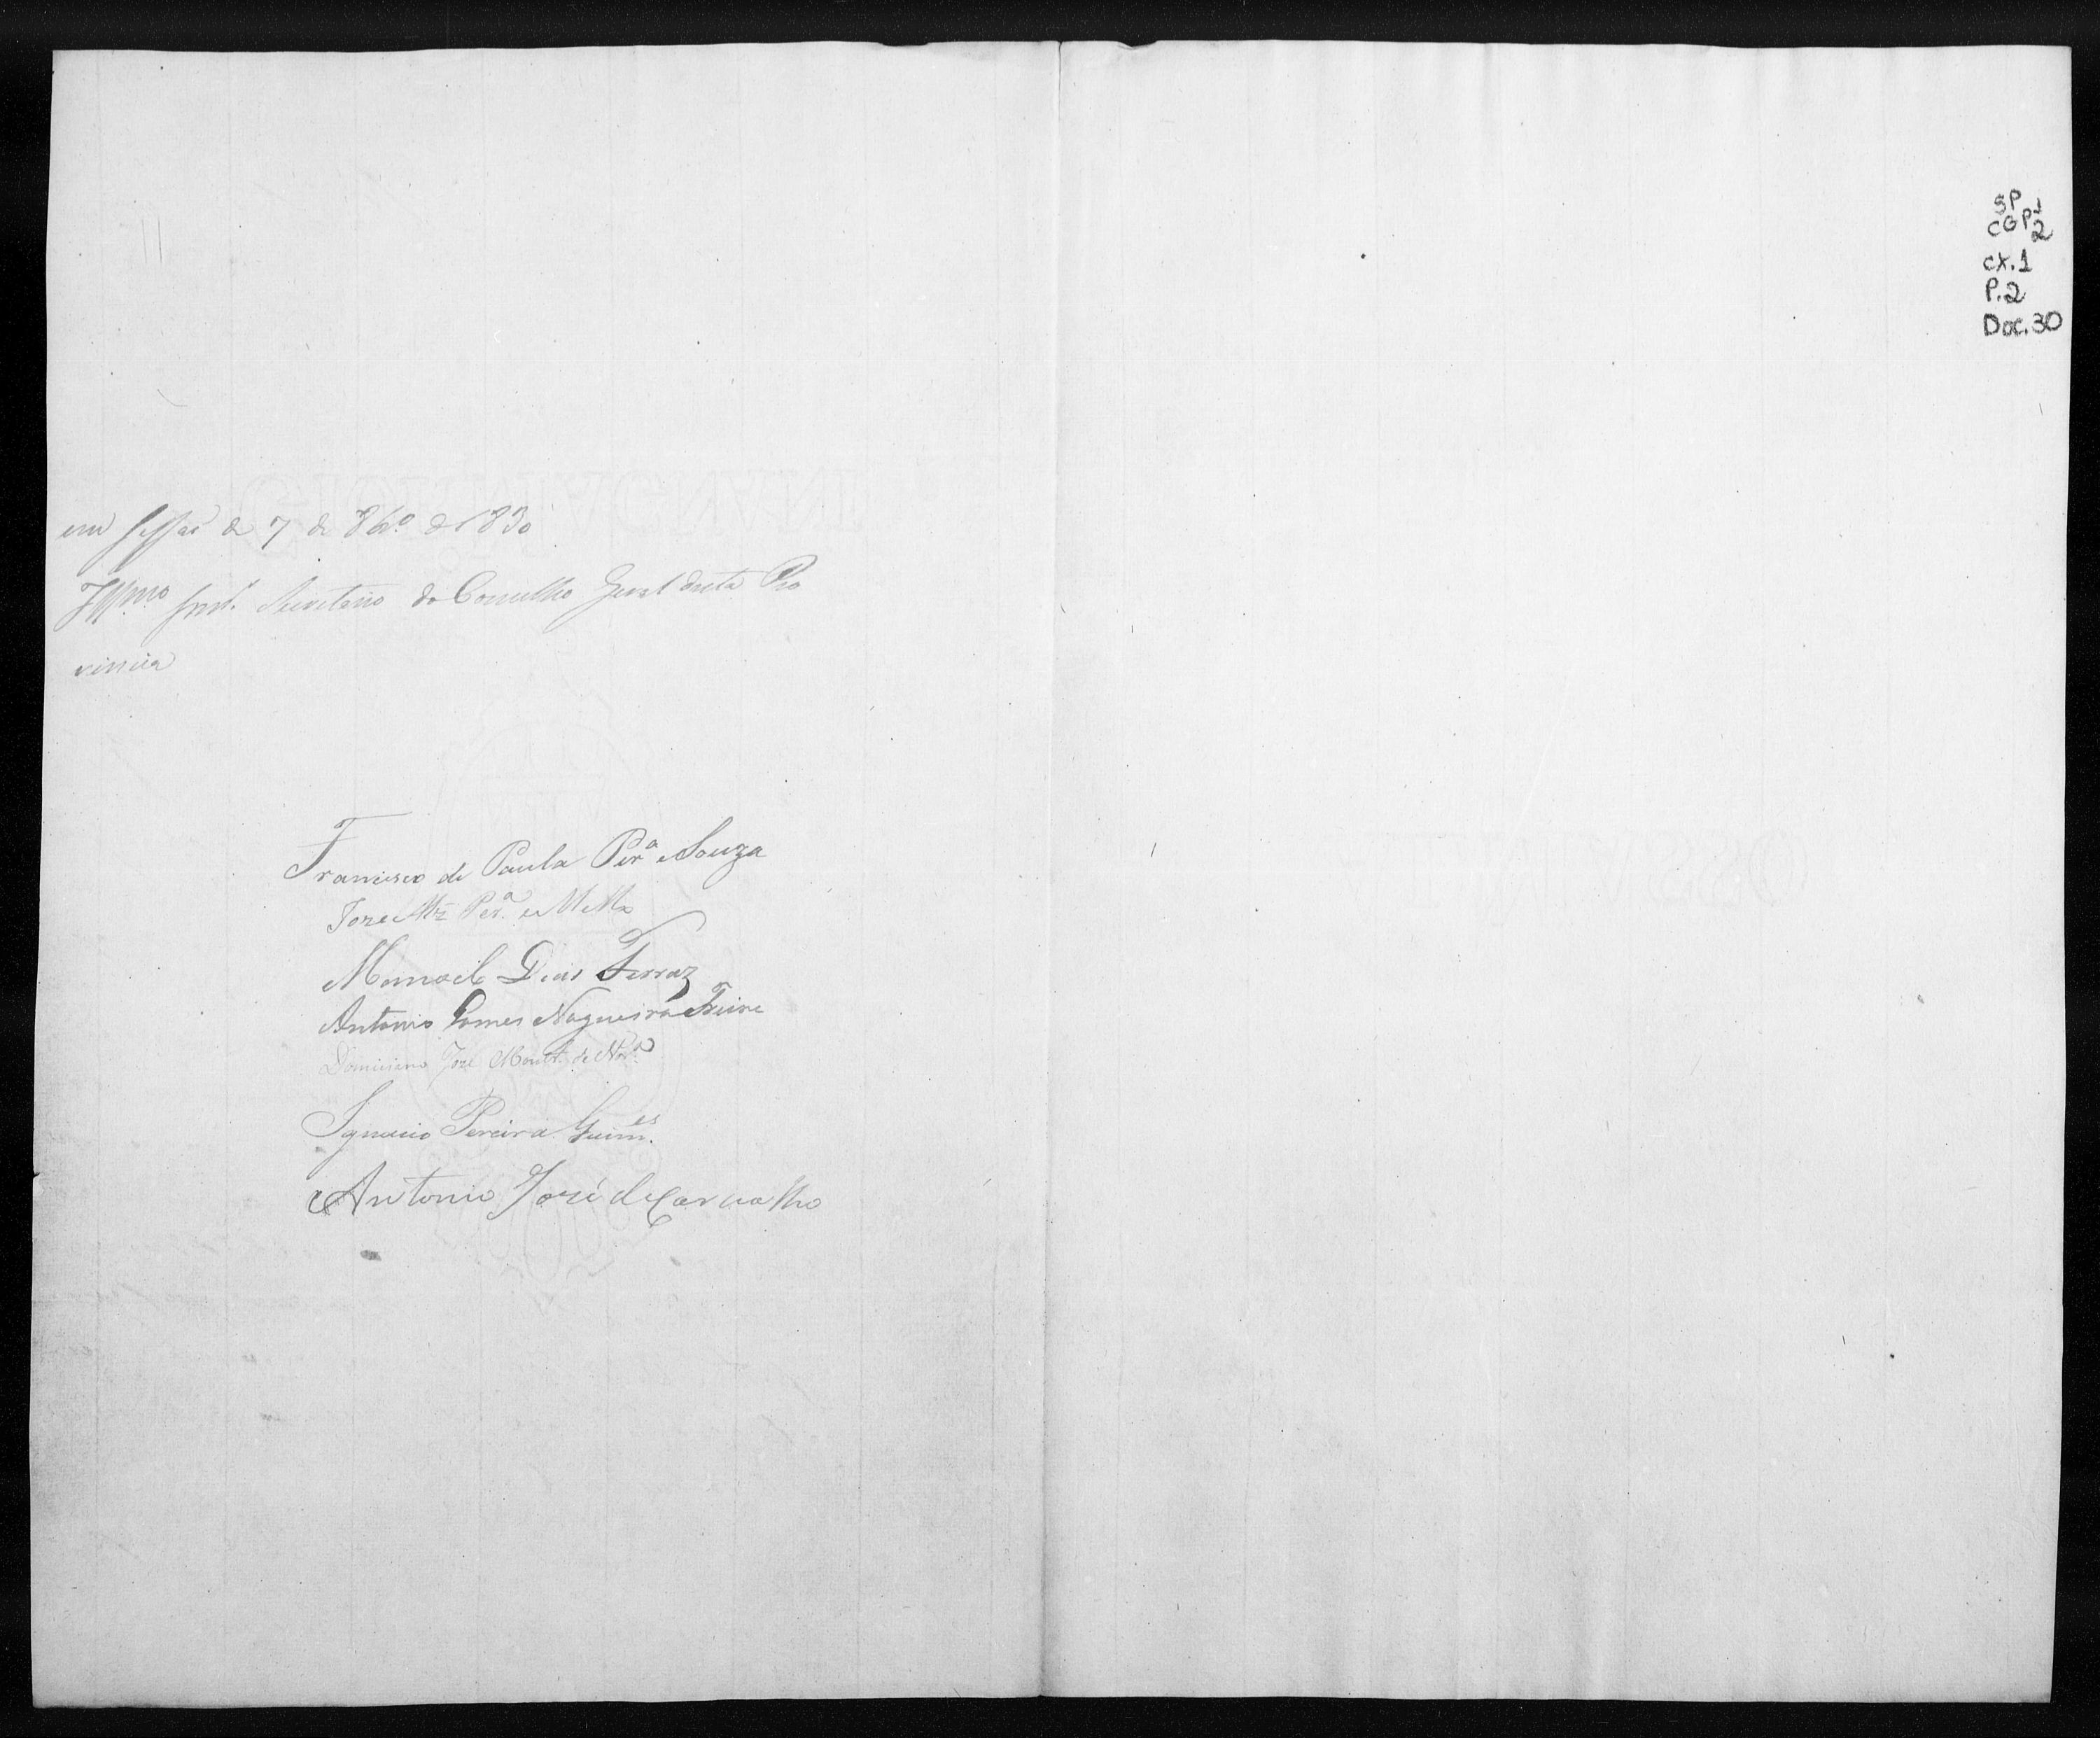 em Sessaõ de 7 de 8br.o de 1830
Illmo Snr. Secretario do Conselho Geral desta Pro
vincia
Francisco de Paula Per.a e Souza
Joze Mz Per.a e Mello
Manoel Dias Ferraz
Antonio Gomes Nogueira Freire
José Mont.o de
Ignacio Pereira Guim.es
Antonio José de Carvalho
SP
CGP1
2
cx.1
P.2
Doc.30
GIOR MAGNANI